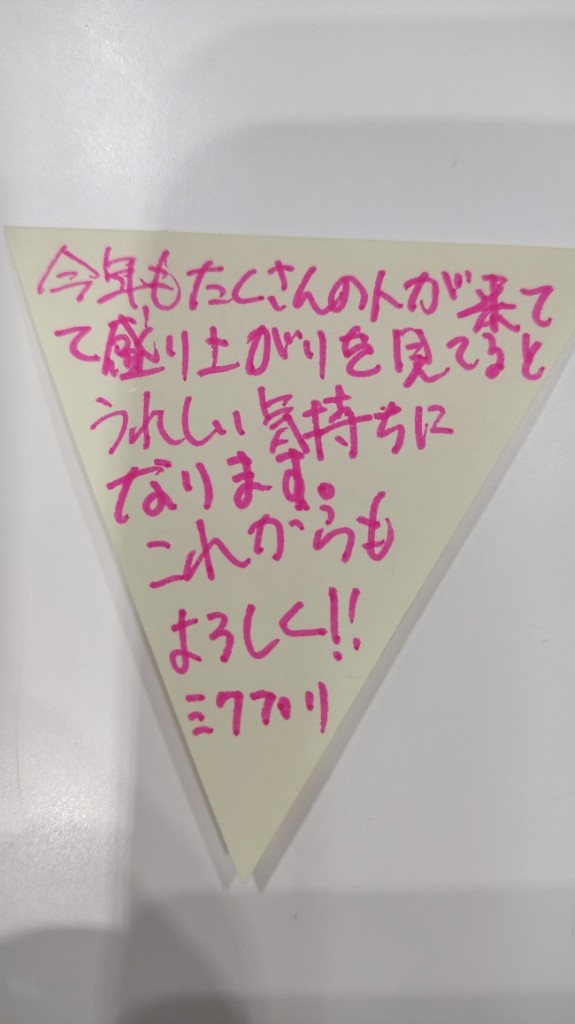 今年もたくさんの人が来て
て盛り上がりを見てると
うれしい気持ちに
なります。
これからも
よろしく!!
ミクプリ